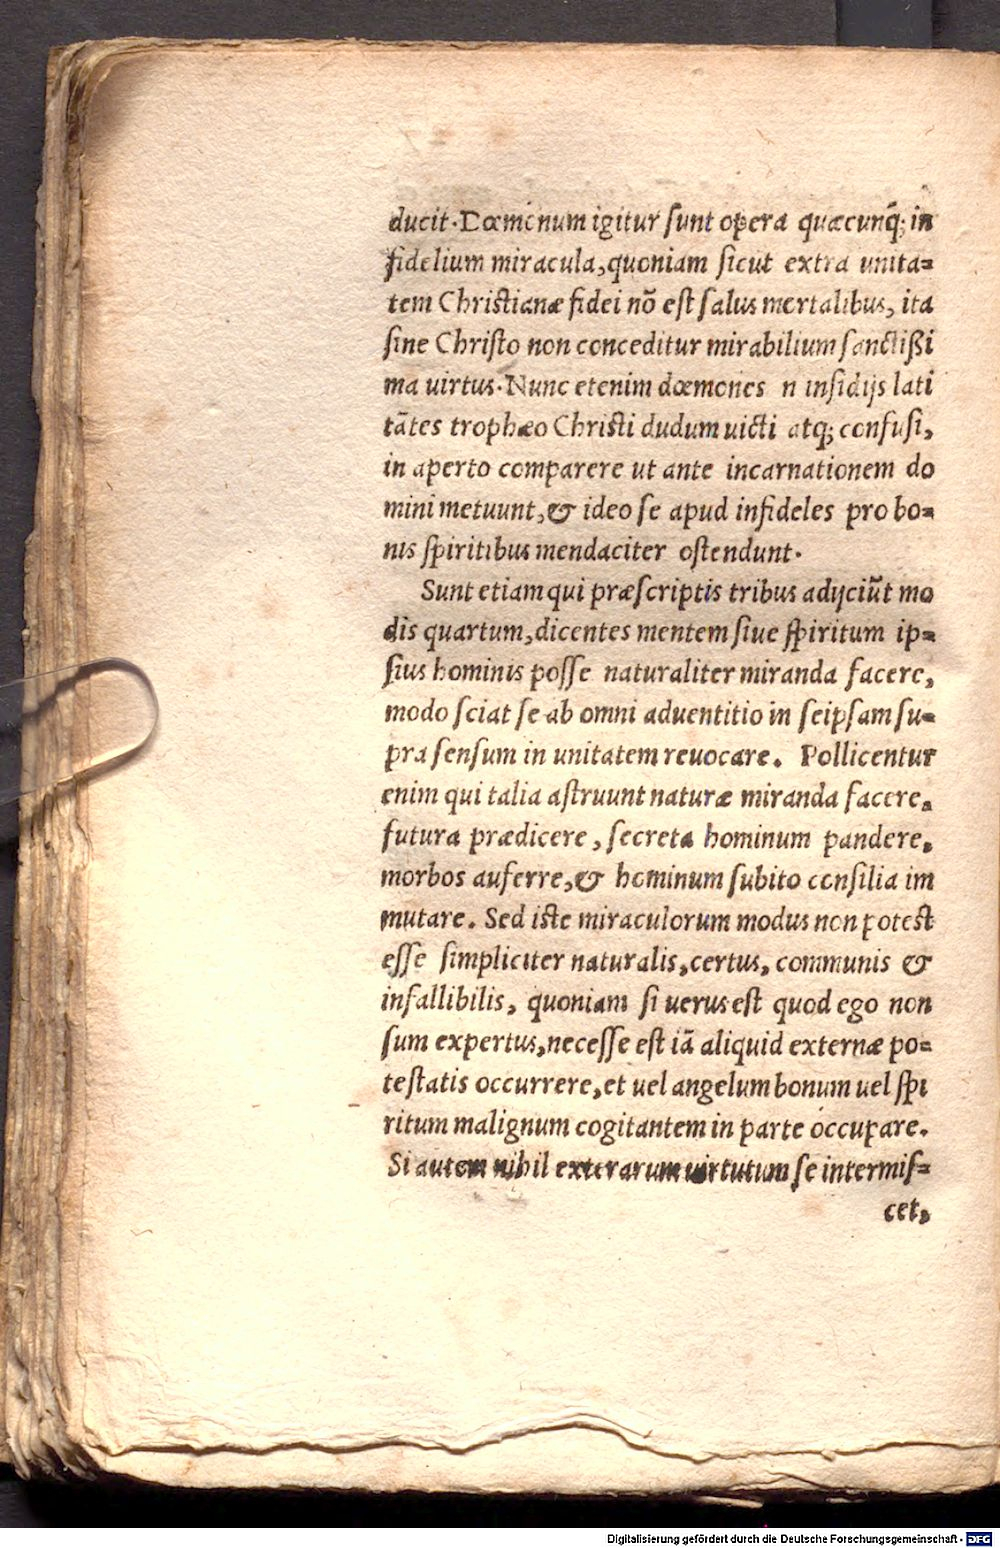 ducit. Dæmonum igitur ſunt opera quæcunq; in
fidelium miracula, quoniam ſicut extra unita=
tem Chriſtianæ fidei nō eſt ſalus mortalibus, ita
ſine Chriſto non conceditur mirabilium ſanctißi
ma uirtus. Nunc etenim dæmones n inſidijs lati
tātes trophæo Chriſti dudum uicti atq; confuſi,
in aperto comparere ut ante incarnationem do
mini metuunt, & ideo ſe apud infideles pro bo=
nis ſpiritibus mendaciter oſtendunt.
Sunt etiam qui præſcriptis tribus adijciūt mo
dis quartum, dicentes mentem ſiue ſpiritum ip=
ſius hominis poſſe naturaliter miranda facere,
modo ſciat ſe ab omni aduentitio in ſeipſam ſu=
pra ſenſum in unitatem reuocare. Pollicentur
enim qui talia aſtruunt naturæ miranda facere,
futura prædicere, ſecreta hominum pandere,
morbos auferre, & hominum ſubito conſilia im
mutare. Sed iſte miraculorum modus non poteſt
eſſe ſimpliciter naturalis, certus, communis &
infallibilis, quoniam ſi uerus eſt quod ego non
ſum expertus, neceſſe eſt iā aliquid externæ po=
teſtatis occurrere, et uel angelum bonum uel ſpi
ritum malignum cogitantem in parte occupare.
Si autem nihil exterarum uirtutum ſe intermiſ=
cet,
Digitalisierung gefördert durch die Deutsche Forschungsgemeinschaft - DFG